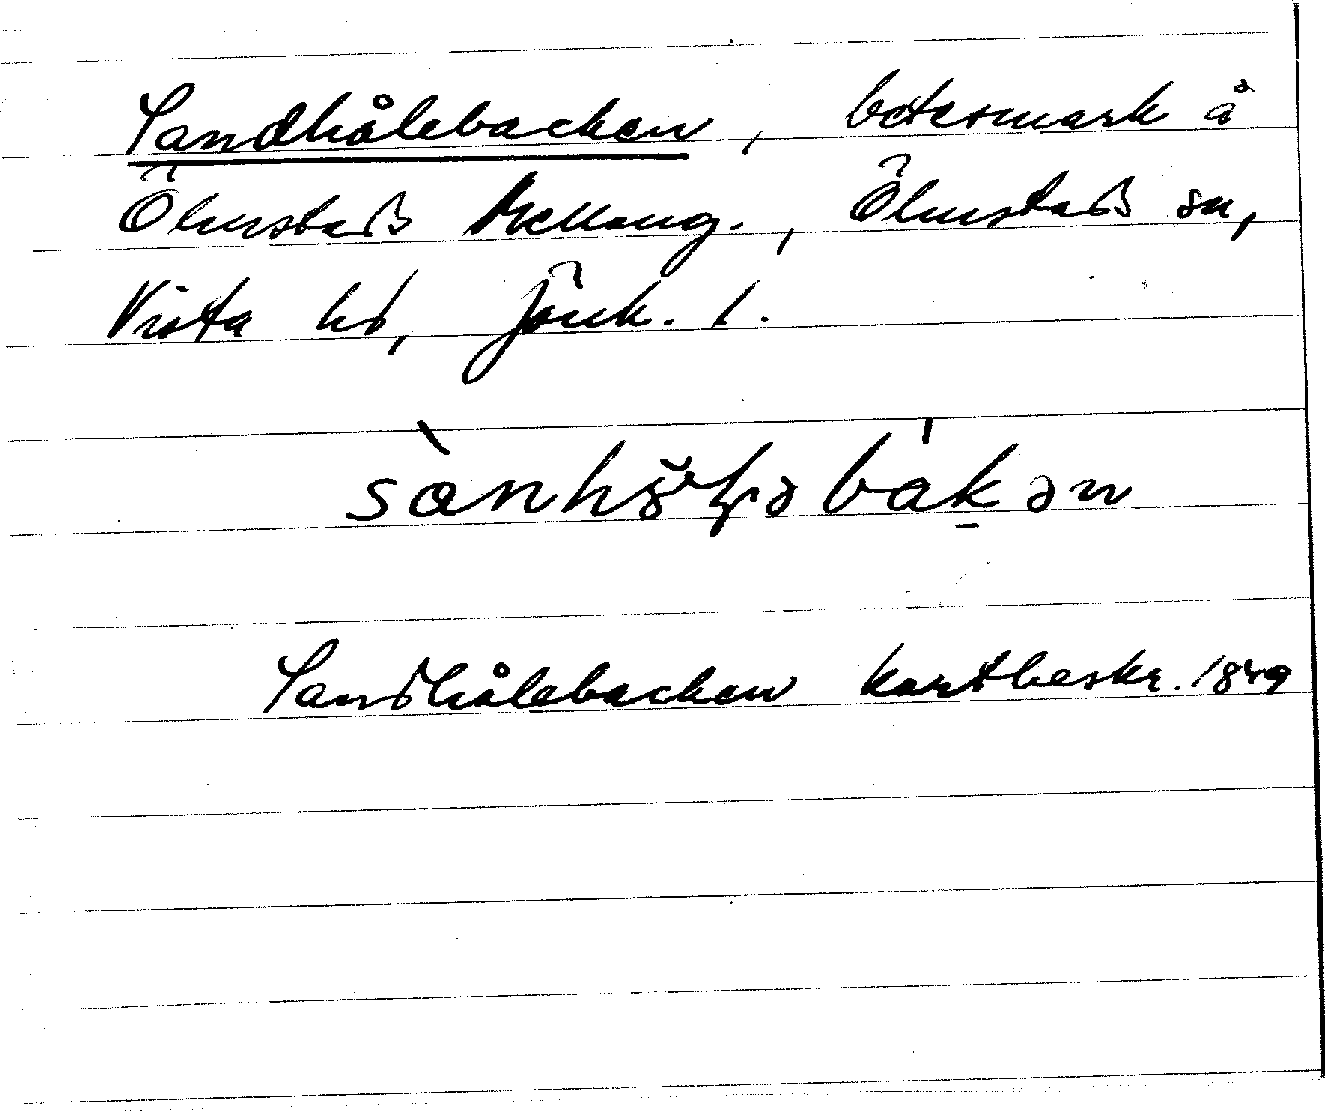 Sandhålebacken, betesmark å
Ölmstads Mellang., Ölmstads sn,
Vista hd, Jönk. l.
Sandhålebacken kartbeskr. 1849